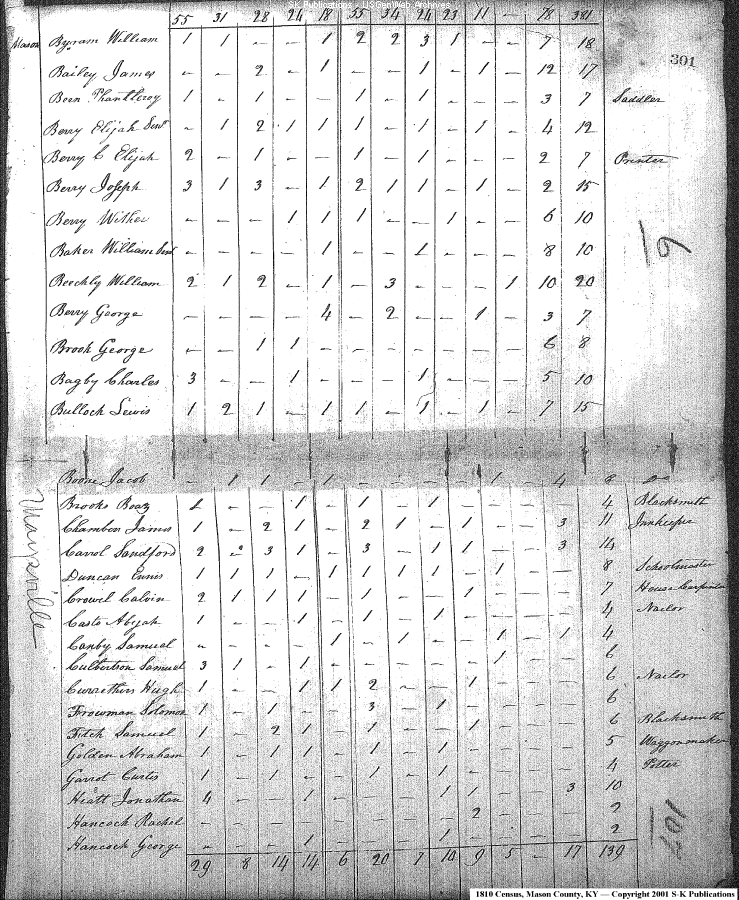 55 31 28 24 18 55 34 24 23 11 — 78 381
Mason Byram William 1 1 — — 1 2 2 3 1 — — 7 18
301
Bailey James — — 2 — 1 — — 1 — 1 — 12 17
Been Phantleroy 1 — 1 — — 1 — 1 — — — 3 7 Saddler
Berry Elijah Senr — 1 2 1 1 1 — 1 — 1 — 4 12
Berry C Elijah 2 — 1 — — 1 — 1 — — — 2 7 Printer
Berry Joseph 3 1 3 — 1 2 1 1 — 1 — 2 15
Berry Wither — — — 1 1 1 — — 1 — — 6 10
Baker William — — — — 1 — — 1 — — — 8 10
19
Beechly William 2 1 2 — 1 — 3 — — — 1 10 20
Berry George — — — — 4 — 2 — — 1 — 3 7
Brook George — — 1 1 — — — — — — — 6 8
Bagby Charles 3 — — 1 — — — 1 — — — 5 10
Bullock Lewis 1 2 1 — 1 1 — 1 — 1 — 7 15
Maysville
Boone Jacob — 1 1 — 1 — — — — 1 — 4 8 Do
Brooks Boaz 1 — — 1 — 1 — 1 — — — — 4 Blacksmith
Chambers James 1 — 2 1 — 2 1 — 1 — — 3 11 Innkeeper
Carrol Sandford 2 2 3 1 — 3 — 1 1 — — 3 14
Duncan Ennis 1 1 1 — 1 1 1 1 — 1 — — 8 Schoolmaster
Crowel Calvin 2 1 1 1 — 1 — — 1 — — — 7 House Carpenter
Casto Abijah 1 — — 1 — 1 — 1 — — — — 4 Nailor
Canby Samuel — — — — 1 — 1 — — 1 — 1 4
Culbertson Samuel 3 1 — 1 — — — — — 1 — — 6
Currethers Hugh 1 — — 1 1 2 — — 1 — — — 6 Nailor
Frowman Solomon 1 — 1 — — 3 — 1 — — — — 6
Fitch Samuel 1 — 2 1 — 1 — — 1 — — — 6 Blacksmith
Golden Abraham 1 — 1 1 — 1 — 1 — — — — 5 Waggonmaker
Garrot Curtis 1 — 1 — — 1 — 1 — — — — 4 Potter
Hiatt Jonathan 4 — — 1 — — — 1 1 — — 3 10
Hancock Rachel — — — — — — — — 2 — — — 2
Hancock George — — — 1 — — — 1 — — — — 2
107
29 8 14 14 6 20 7 10 9 5 — 17 139
1810 Census, Mason County, KY — Copyright 2001 S-K Publications